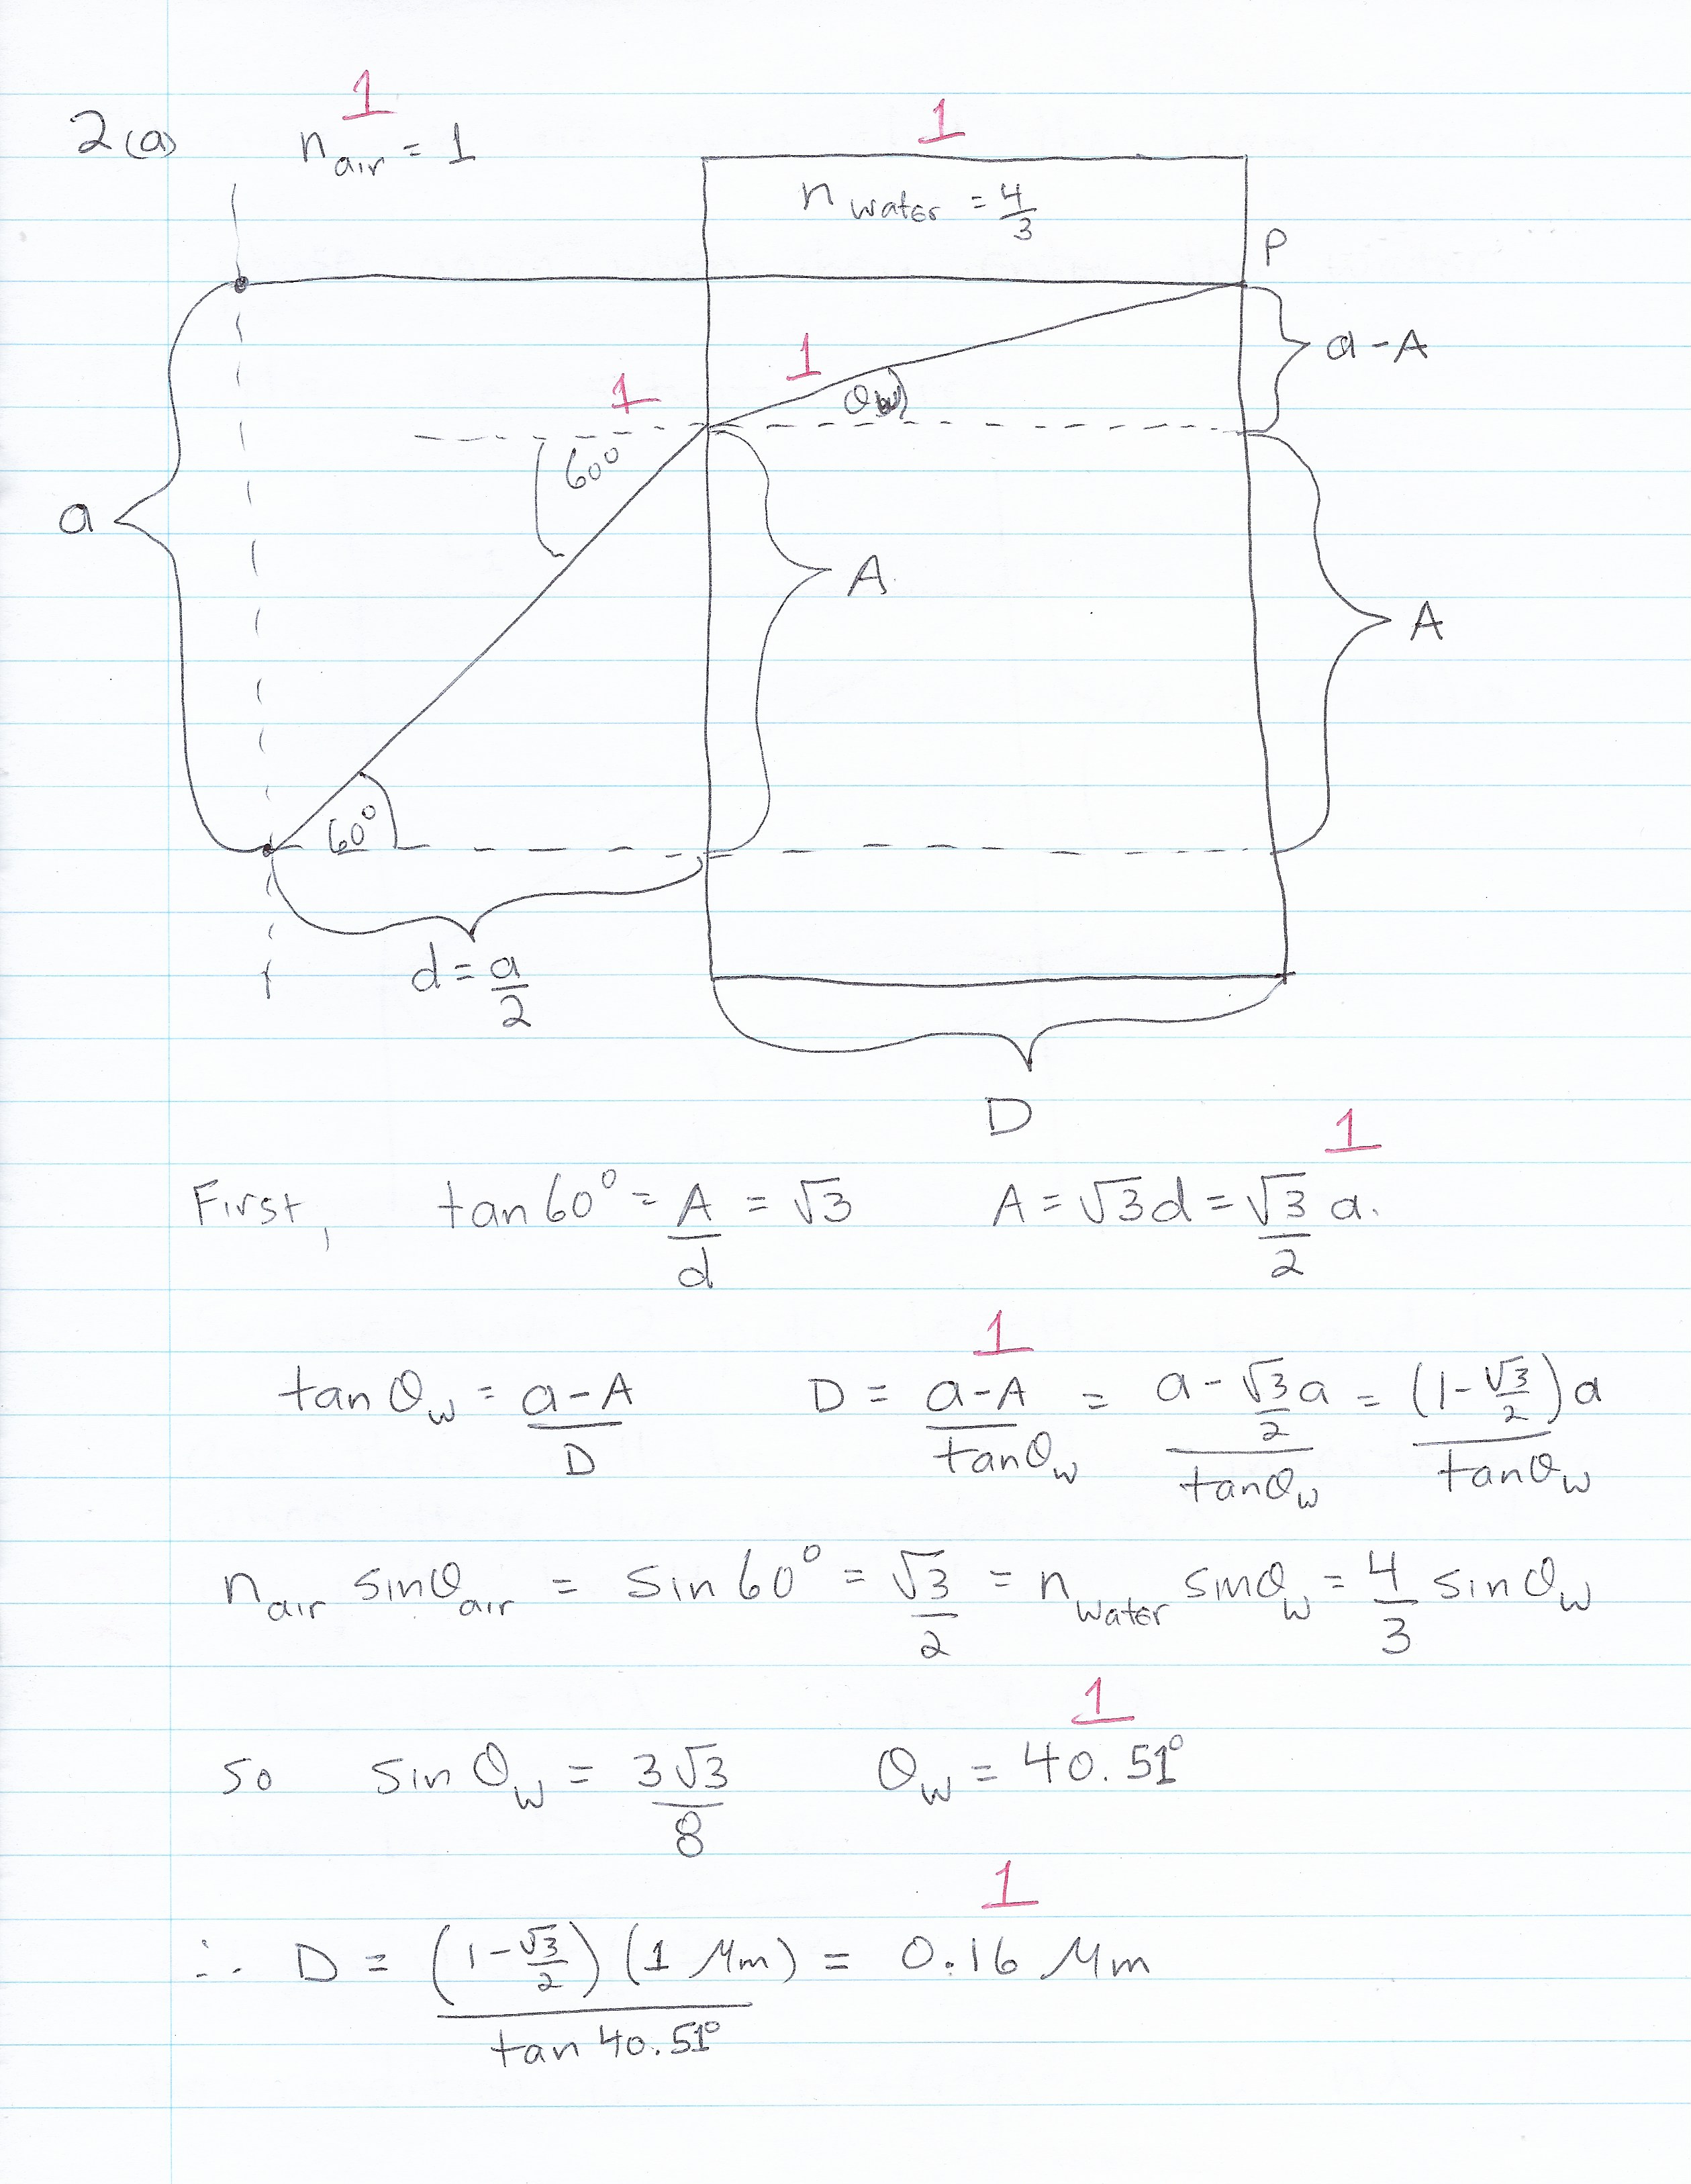 1
2(a) n_air = 1
1
n_water = 4/3
P
a-A
1
1
θ_w
60°
a
A
A
60°
d = a/2
D
1
First, tan 60° = A/d = √3 A = √3 d = √3/2 a.
1
tan θ_w = (a-A)/D D = (a-A)/tan θ_w = (a - √3/2 a)/tan θ_w = (1 - √3/2)a/tan θ_w
n_air sin θ_air = sin 60° = √3/2 = n_water sin θ_w = 4/3 sin θ_w
1
so sin θ_w = 3√3/8 θ_w = 40.51°
1
∴ D = (1 - √3/2)(1 μm)/tan 40.51° = 0.16 μm